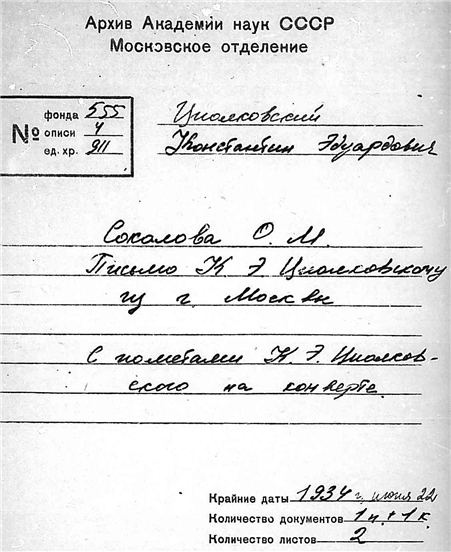 Архив Академии наук СССР
Московское отделение
№ фонда 555
описи 4
ед. хр. 911
Циолковский
Константин Эдуардович
Соколова О. М.
Письмо К Э Циолковскому
из г. Москвы
С пометами К. Э. Циолков-
ского на конверте.
Крайние даты 1934 г. июня 22
Количество документов 1 п. + 1 к.
Количество листов 2